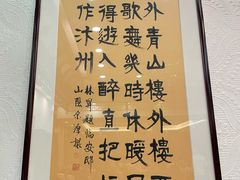 外青山樓外樓西
歌舞幾時休暖風
得遊人醉直把杭
作汴州
林昇題臨安邸
山陰